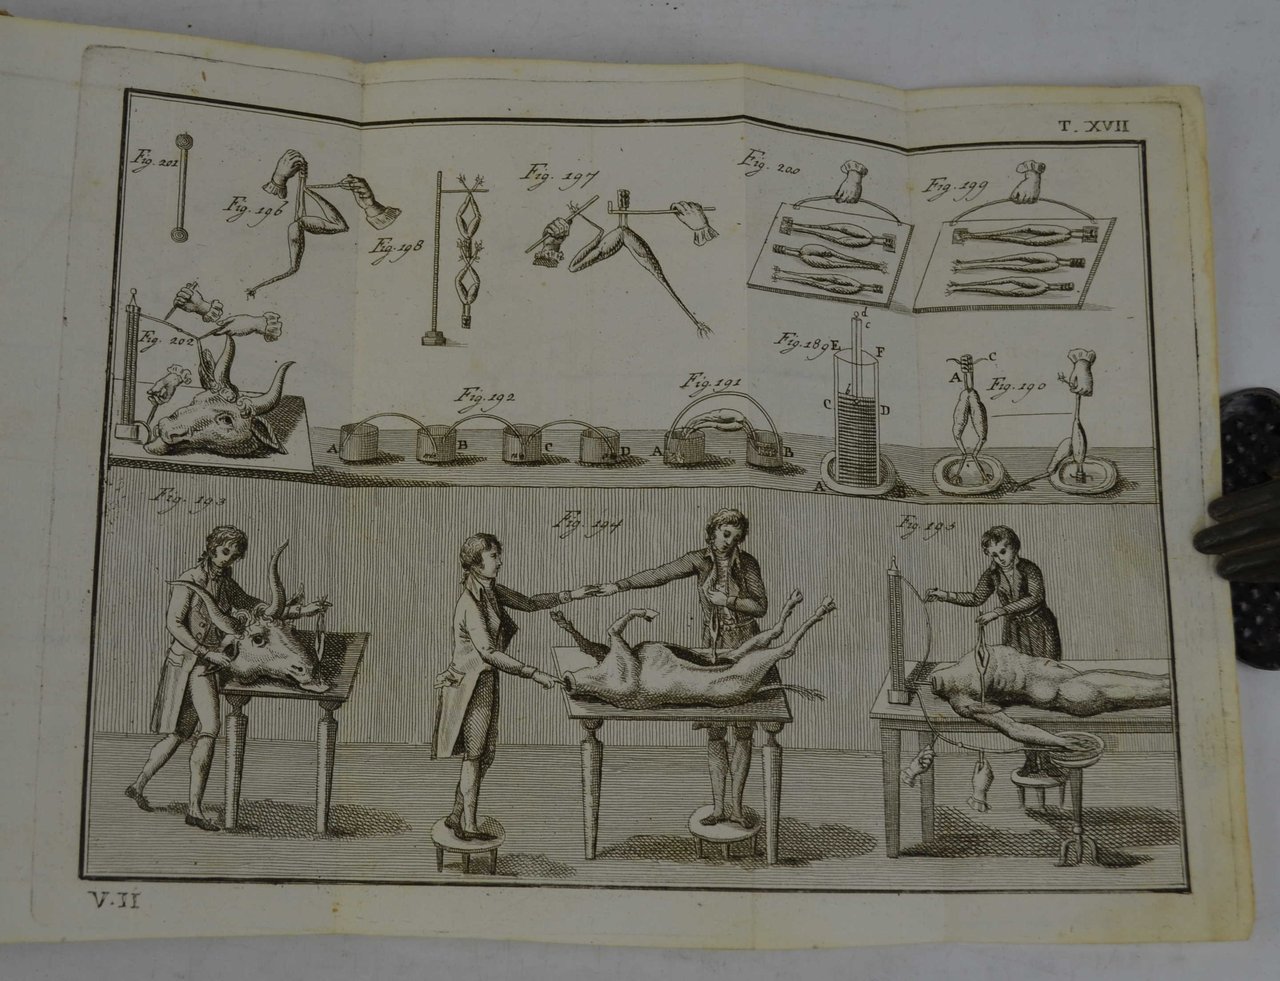 T. XVII
Fig. 201
Fig. 196
Fig. 198
Fig. 197
Fig. 200
Fig. 199
Fig. 202
Fig. 189
d
c
E
F
b
C
D
A
Fig. 190
A
C
Fig. 192
A
B
C
D
Fig. 191
A
B
Fig. 193
Fig. 194
Fig. 195
V.II